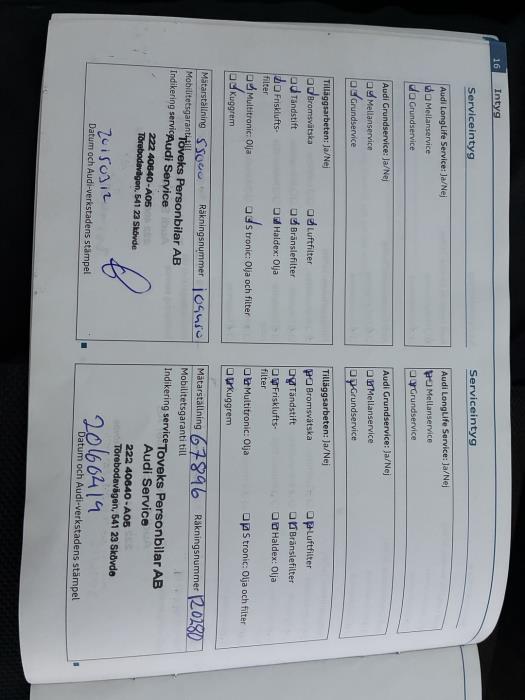 16
Intyg
Serviceintyg
Audi LongLife Service: Ja/Nej
Mellanservice
Grundservice
Audi Grundservice: Ja/Nej
Mellanservice
Grundservice
Tilläggsarbeten: Ja/Nej
Bromsvätska
Luftfilter
Tändstift
Bränslefilter
Friskluftsfilter
Haldex: Olja
Multitronic: Olja
S tronic: Olja och filter
Kuggrem
Mätarställning
Räkningsnummer
Mobilitetsgaranti till
Indikering service
Toveks Personbilar AB
Audi Service
222 40640 - A05
Törebodavägen, 541 23 Skövde
20150312
Datum och Audi-verkstadens stämpel
Serviceintyg
Audi LongLife Service: Ja/Nej
Mellanservice
Grundservice
Audi Grundservice: Ja/Nej
Mellanservice
Grundservice
Tilläggsarbeten: Ja/Nej
Bromsvätska
Luftfilter
Tändstift
Bränslefilter
Friskluftsfilter
Haldex: Olja
Multitronic: Olja
S tronic: Olja och filter
Kuggrem
Mätarställning 67896 Räkningsnummer 120280
Mobilitetsgaranti till
Indikering service
Toveks Personbilar AB
Audi Service
222 40640 - A05
Törebodavägen, 541 23 Skövde
20160419
Datum och Audi-verkstadens stämpel